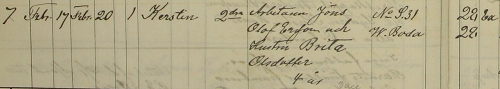 7. Febr. 17 Febr. 20 1 Kerstin 2dra Arbetaren Jöns No S.31 28 Ea
Olof Ersson och W. Boda 28
Hustru Brita
Olsdotter
4 år